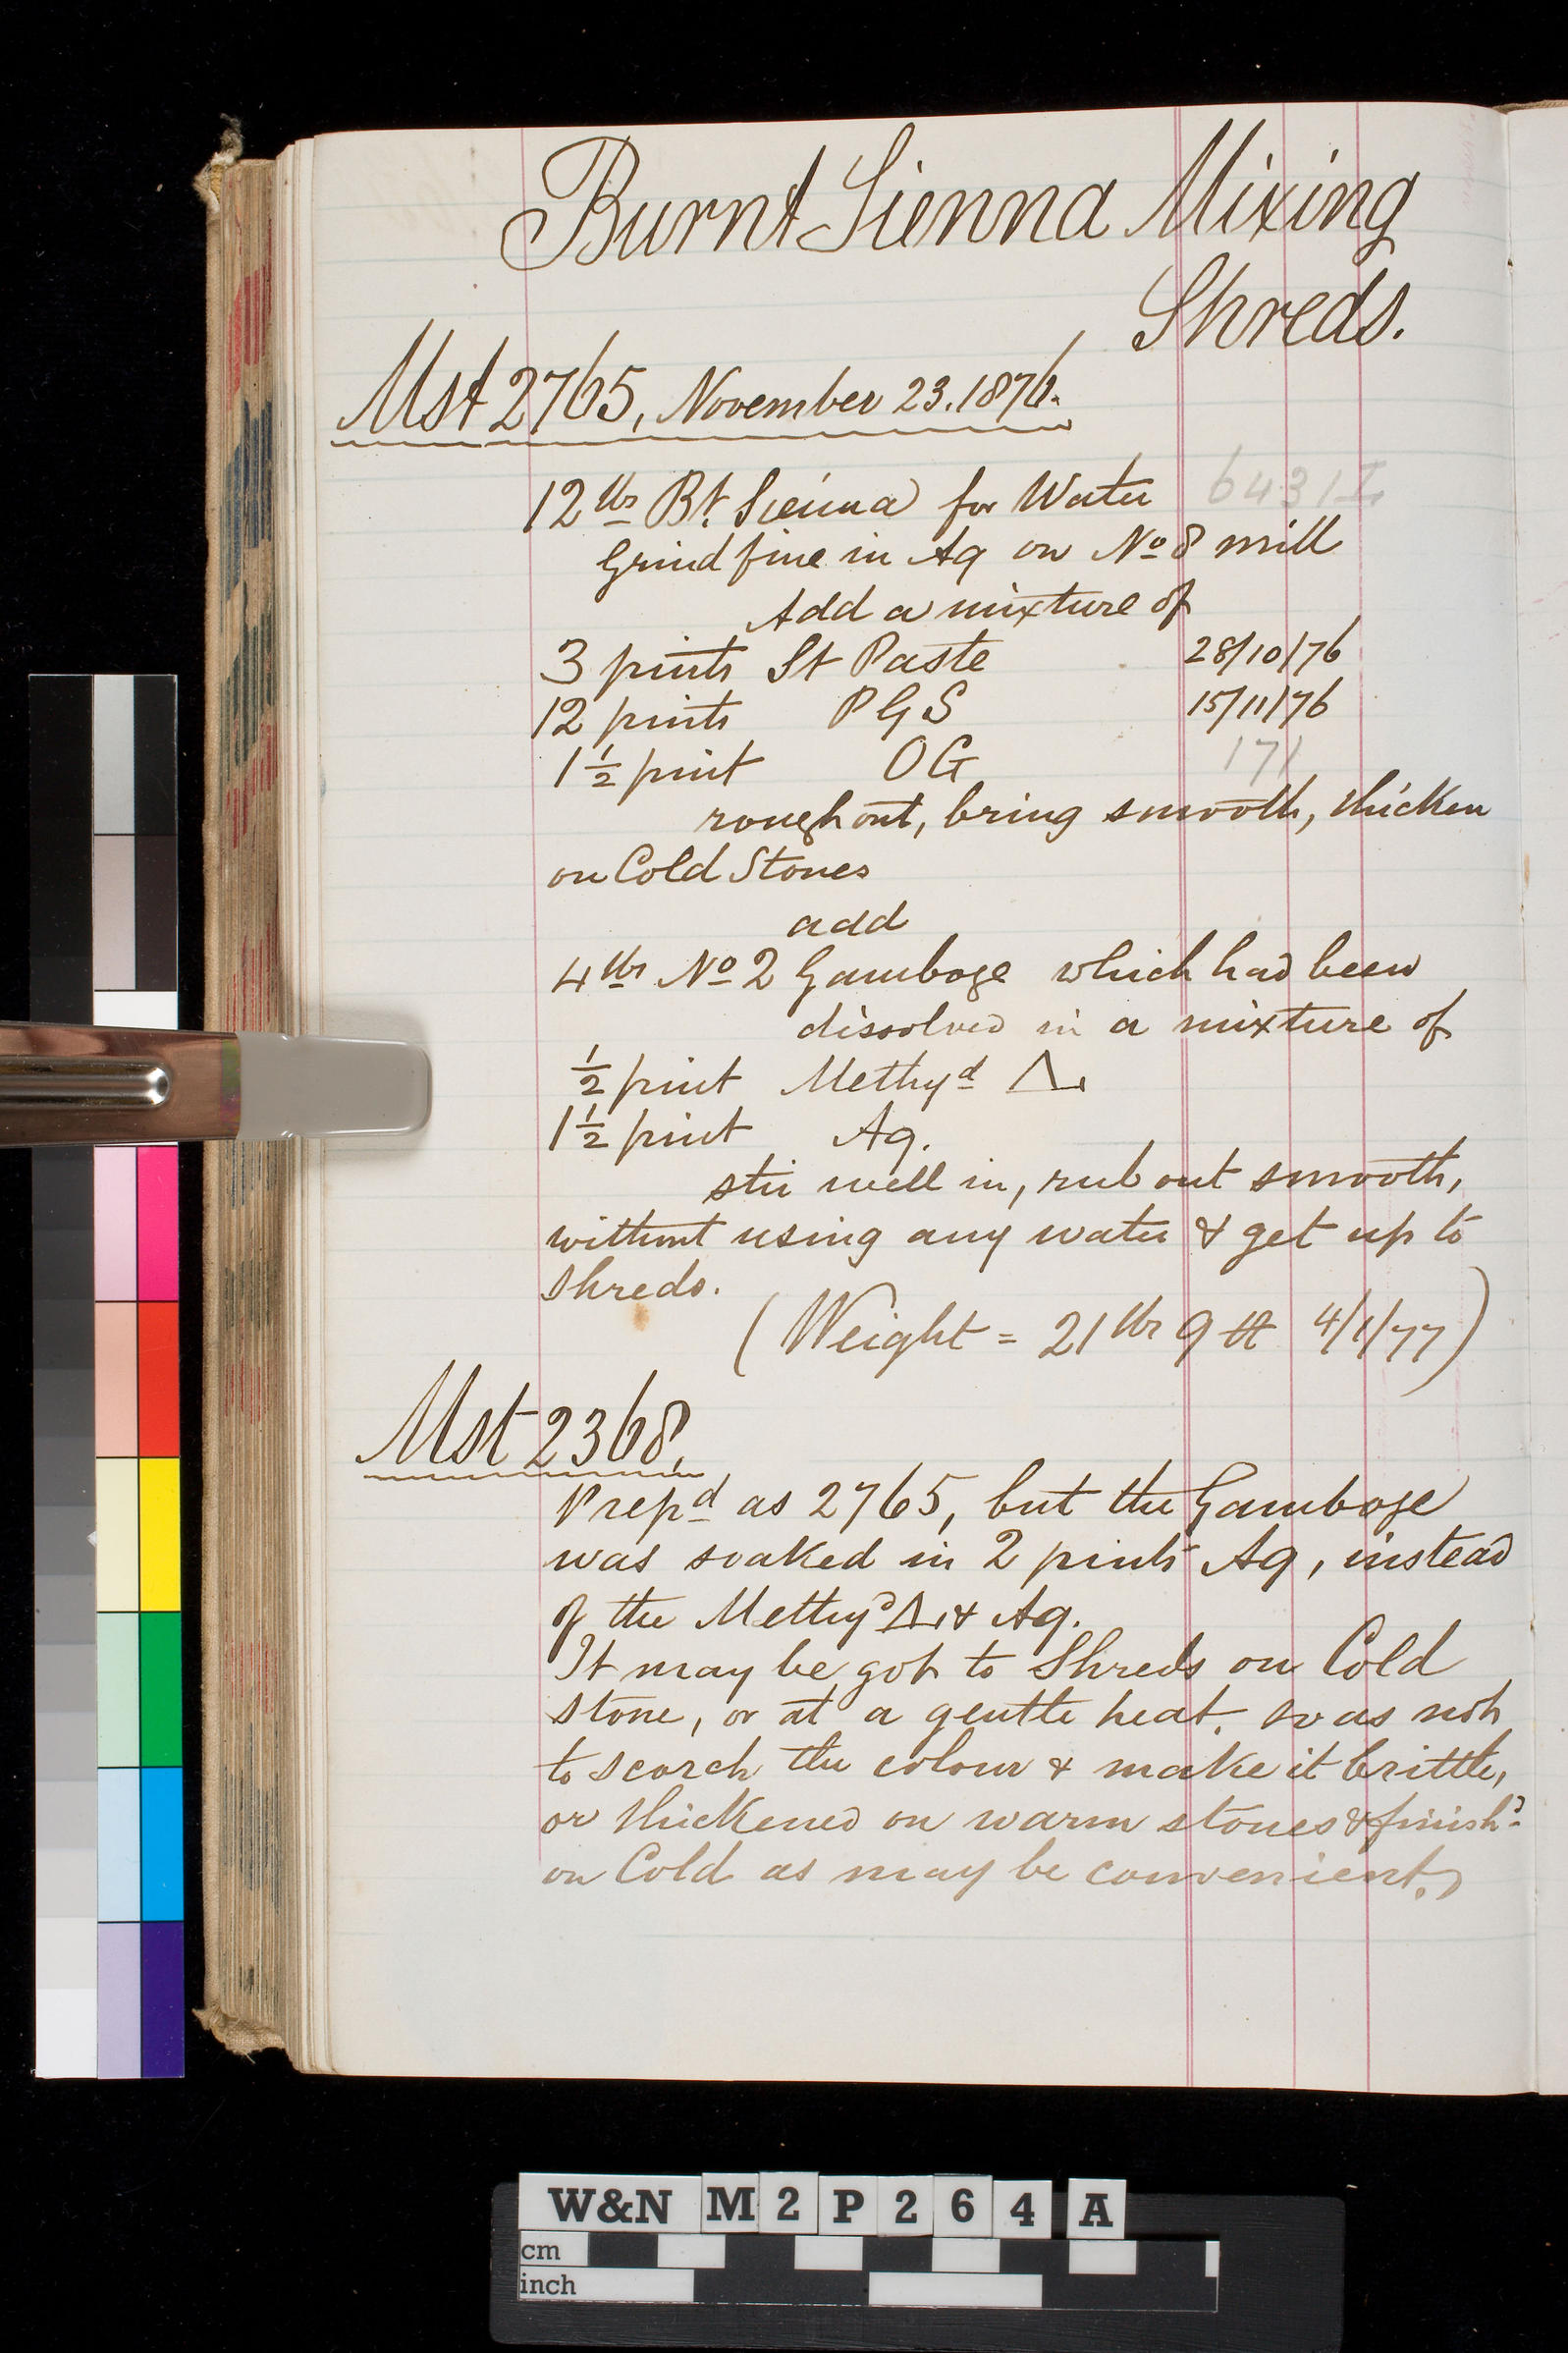 Burnt Sienna Mixing
Shreds.
Mst 2765, November 23. 1876.
12 lbs Bt. Sienna for Water 6431
Grind fine in Aq on No 8 mill
Add a mixture of
3 pints St Paste 28/10/76
12 pints P G S 15/11/76
1 ½ pint O G 171
rough out, bring smooth, thicken
on Cold Stones
add
4 lbs No 2 Gamboge which had been
dissolved in a mixture of
½ pint Methyd Λ
1 ½ pint Aq.
stir well in, rub out smooth,
without using any water & get up to
shreds.
(Weight = 21 lbs 9 4/1/77)
Mst 2368,
Prepd as 2765, but the Gamboge
was soaked in 2 pints Aq, instead
of the Methyd Λ & Aq.
It may be got to Shreds on Cold
stone, or at a gentle heat. so as not
to scorch the colour & make it brittle,
or thickened on warm stones & finishd
on Cold as may be convenient.
W&N M 2 P 2 6 4 A
cm
inch